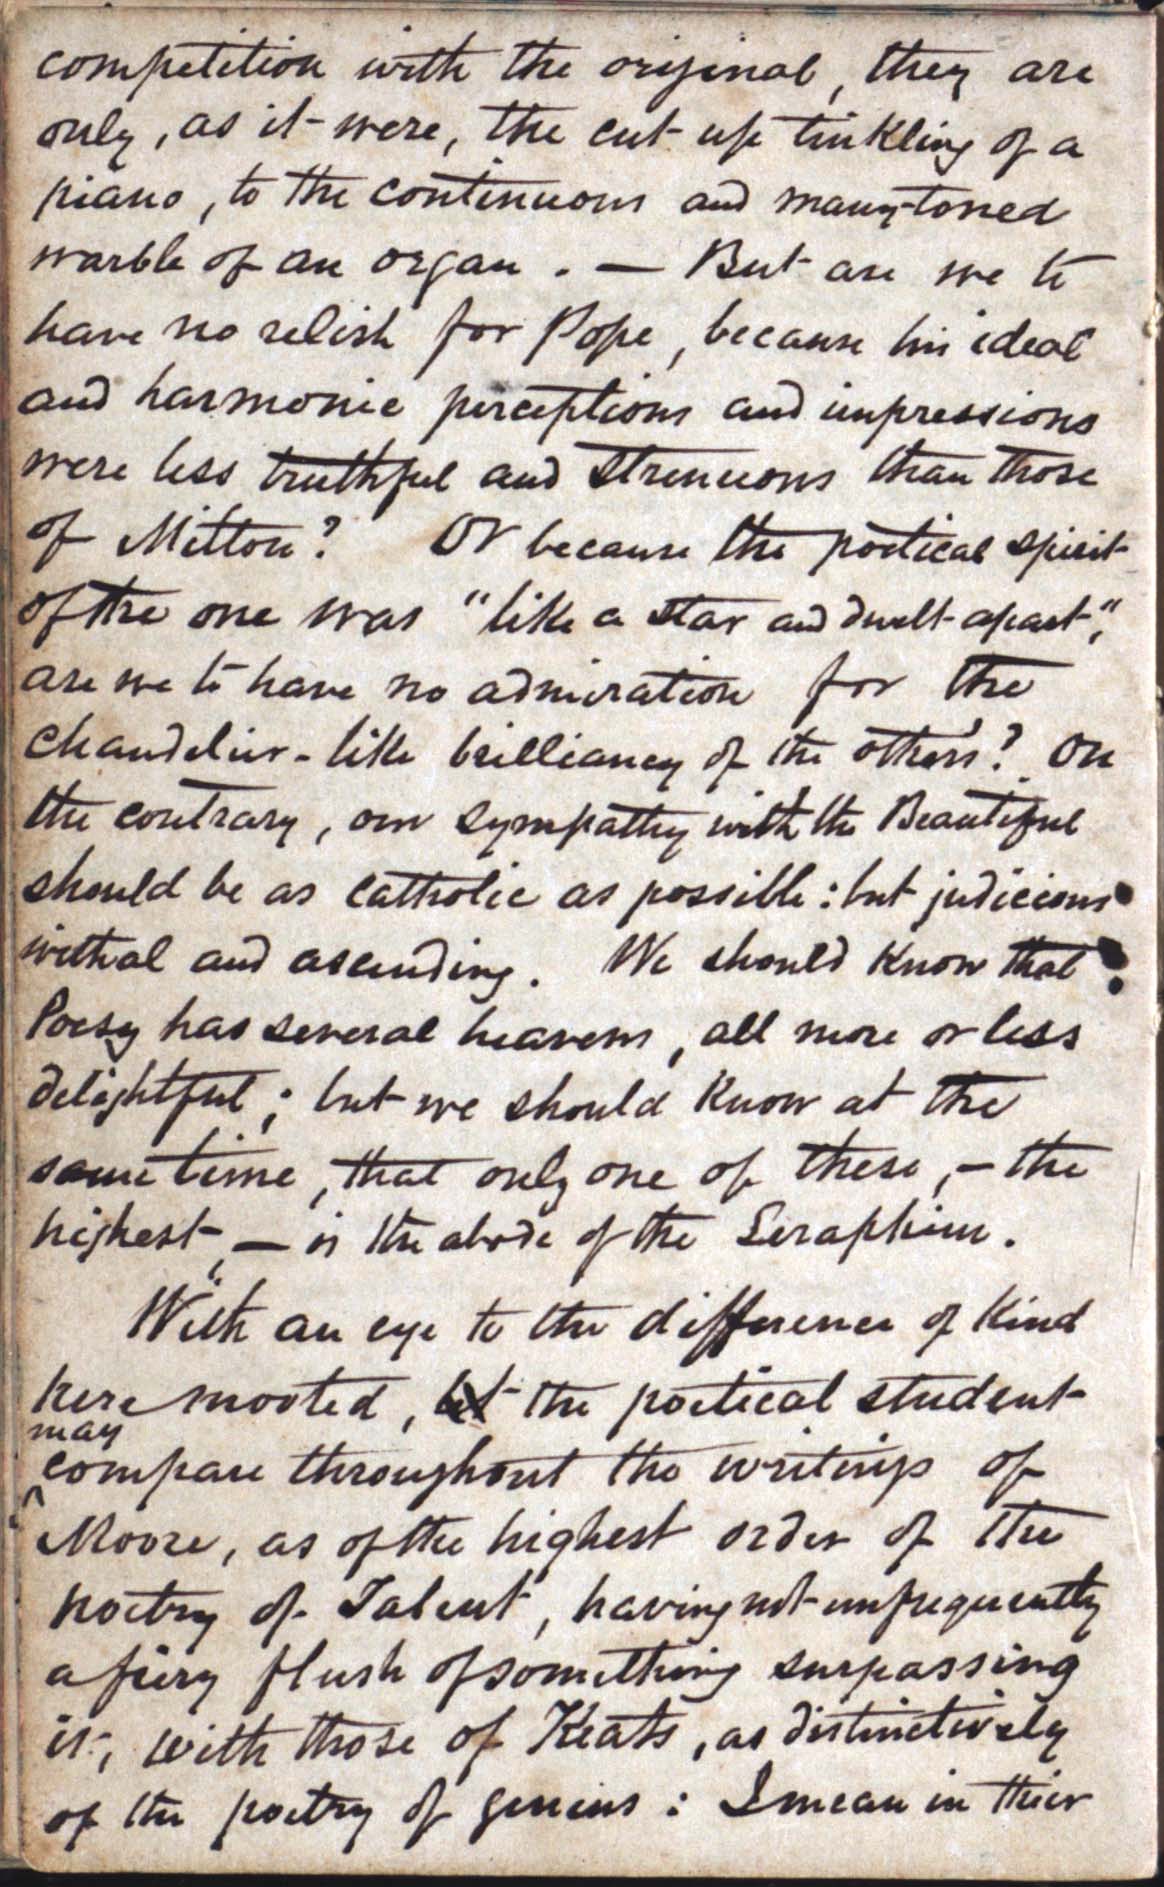 competition with the original, they are
only, as it were, the cut up tinkling of a
piano, to the continuous and many-toned
warble of an organ. — But are we to
have no relish for Pope, because his ideal
and harmonic perceptions and impressions
were less truthful and strenuous than those
of Milton? Or because the poetical spirit
of the one was "like a star and dwelt apart",
are we to have no admiration for the
chandelier-like brilliancy of the other's? On
the contrary, our sympathy with the Beautiful
should be as catholic as possible: but judicious
withal and ascending. We should know that
Poesy has several heavens, all more or less
delightful; but we should know at the
same time, that only one of these, — the
highest, — is the abode of the Seraphim.
With an eye to the difference of kind
here mooted, let the poetical student
may
compare throughout the writings of
Moore, as of the highest order of the
poetry of Talent, having not unfrequently
a fiery flush of something surpassing
it, with those of Keats, as distinctively
of the poetry of genius: I mean in thier